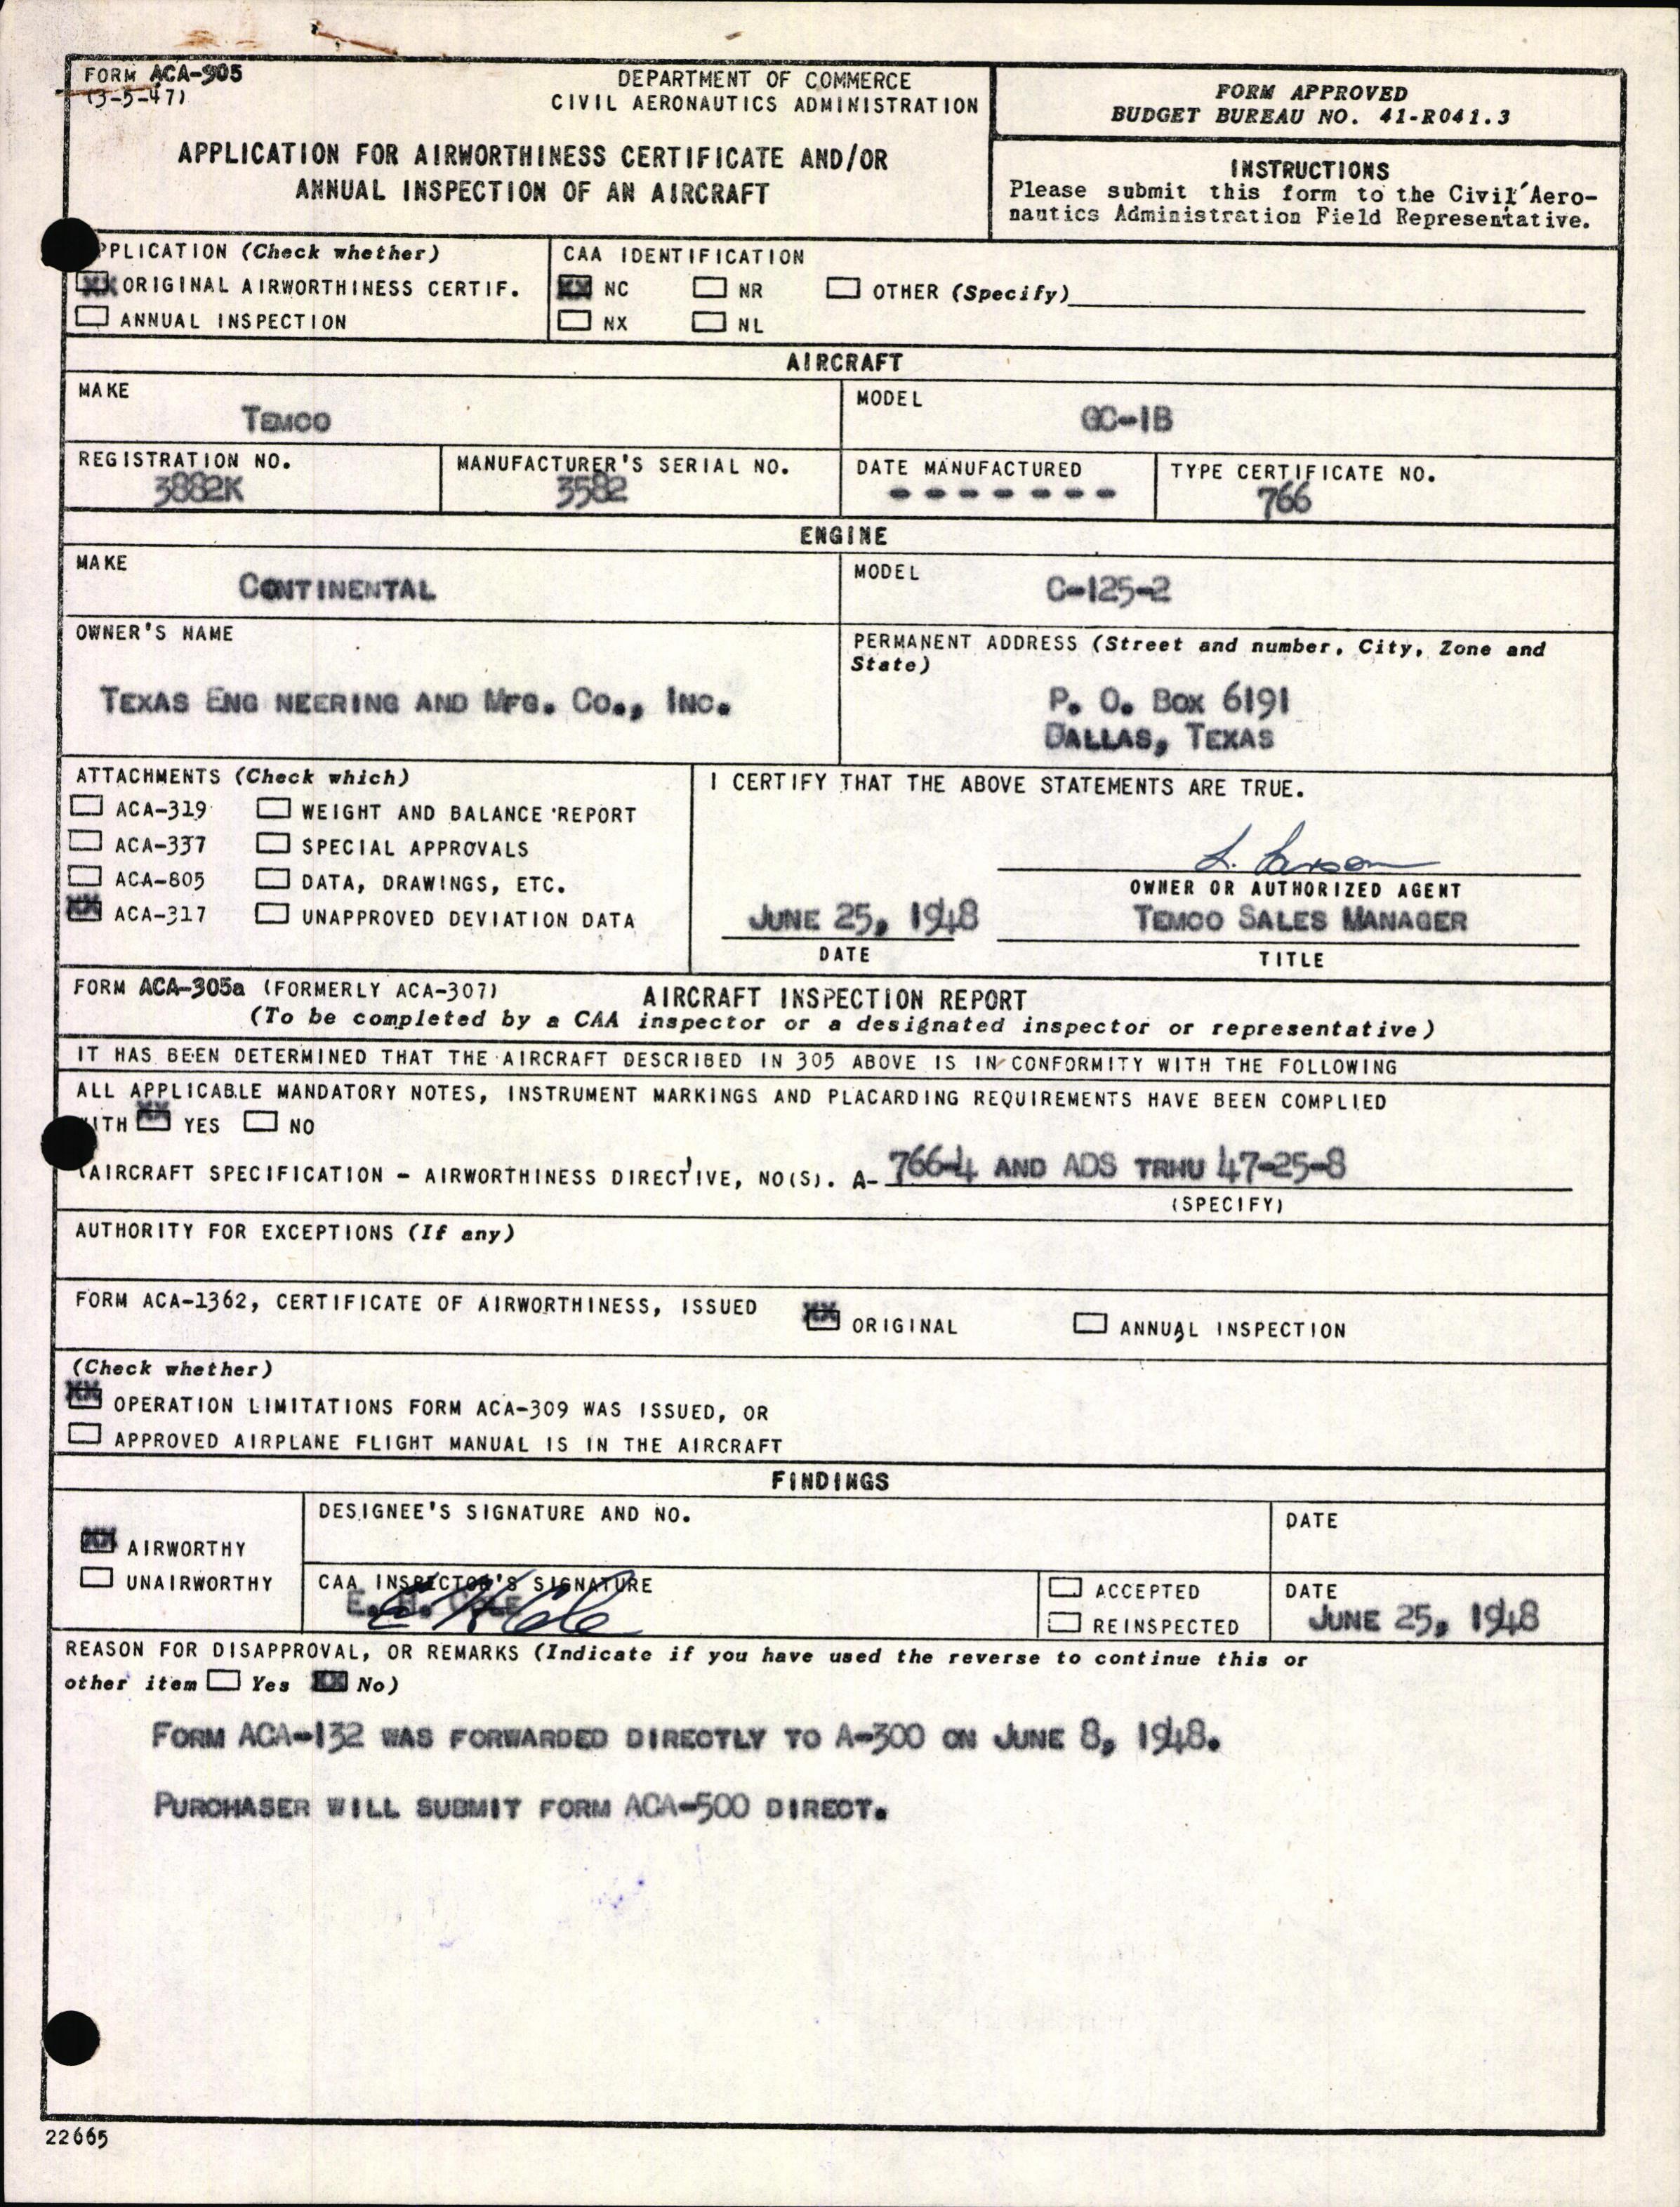 FORM ACA-305
(3-5-47)
DEPARTMENT OF COMMERCE
CIVIL AERONAUTICS ADMINISTRATION
APPLICATION FOR AIRWORTHINESS CERTIFICATE AND/OR
ANNUAL INSPECTION OF AN AIRCRAFT
FORM APPROVED
BUDGET BUREAU NO. 41-R041.3
INSTRUCTIONS
Please submit this form to the Civil Aero-
nautics Administration Field Representative.
PPLICATION (Check whether)
XX ORIGINAL AIRWORTHINESS CERTIF.
ANNUAL INSPECTION
CAA IDENTIFICATION
XX NC NR OTHER (Specify)
NX NL
AIRCRAFT
MAKE
TEMCO
MODEL
GC-1B
REGISTRATION NO.
3882K
MANUFACTURER'S SERIAL NO.
3582
DATE MANUFACTURED
- - - - - - -
TYPE CERTIFICATE NO.
766
ENGINE
MAKE
CONTINENTAL
MODEL
C-125-2
OWNER'S NAME
TEXAS ENG NEERING AND MFG. CO., INC.
PERMANENT ADDRESS (Street and number, City, Zone and
State)
P. O. BOX 6191
DALLAS, TEXAS
ATTACHMENTS (Check which)
ACA-319 WEIGHT AND BALANCE REPORT
ACA-337 SPECIAL APPROVALS
ACA-805 DATA, DRAWINGS, ETC.
XX ACA-317 UNAPPROVED DEVIATION DATA
I CERTIFY THAT THE ABOVE STATEMENTS ARE TRUE.
L. Larson
OWNER OR AUTHORIZED AGENT
JUNE 25, 1948 TEMCO SALES MANAGER
DATE TITLE
FORM ACA-305a (FORMERLY ACA-307) AIRCRAFT INSPECTION REPORT
(To be completed by a CAA inspector or a designated inspector or representative)
IT HAS BEEN DETERMINED THAT THE AIRCRAFT DESCRIBED IN 305 ABOVE IS IN CONFORMITY WITH THE FOLLOWING
ALL APPLICABLE MANDATORY NOTES, INSTRUMENT MARKINGS AND PLACARDING REQUIREMENTS HAVE BEEN COMPLIED
ITH XX YES NO
(AIRCRAFT SPECIFICATION - AIRWORTHINESS DIRECTIVE, NO(S). A- 766-4 AND ADS TRHU 47-25-8
(SPECIFY)
AUTHORITY FOR EXCEPTIONS (If any)
FORM ACA-1362, CERTIFICATE OF AIRWORTHINESS, ISSUED XX ORIGINAL ANNUAL INSPECTION
(Check whether)
XX OPERATION LIMITATIONS FORM ACA-309 WAS ISSUED, OR
APPROVED AIRPLANE FLIGHT MANUAL IS IN THE AIRCRAFT
FINDINGS
XX AIRWORTHY
UNAIRWORTHY
DESIGNEE'S SIGNATURE AND NO.
DATE
CAA INSPECTOR'S SIGNATURE
E. H. COLE
E H Cole
ACCEPTED
REINSPECTED
DATE
JUNE 25, 1948
REASON FOR DISAPPROVAL, OR REMARKS (Indicate if you have used the reverse to continue this or
other item Yes XX No)
FORM ACA-132 WAS FORWARDED DIRECTLY TO A-300 ON JUNE 8, 1948.
PURCHASER WILL SUBMIT FORM ACA-500 DIRECT.
22665